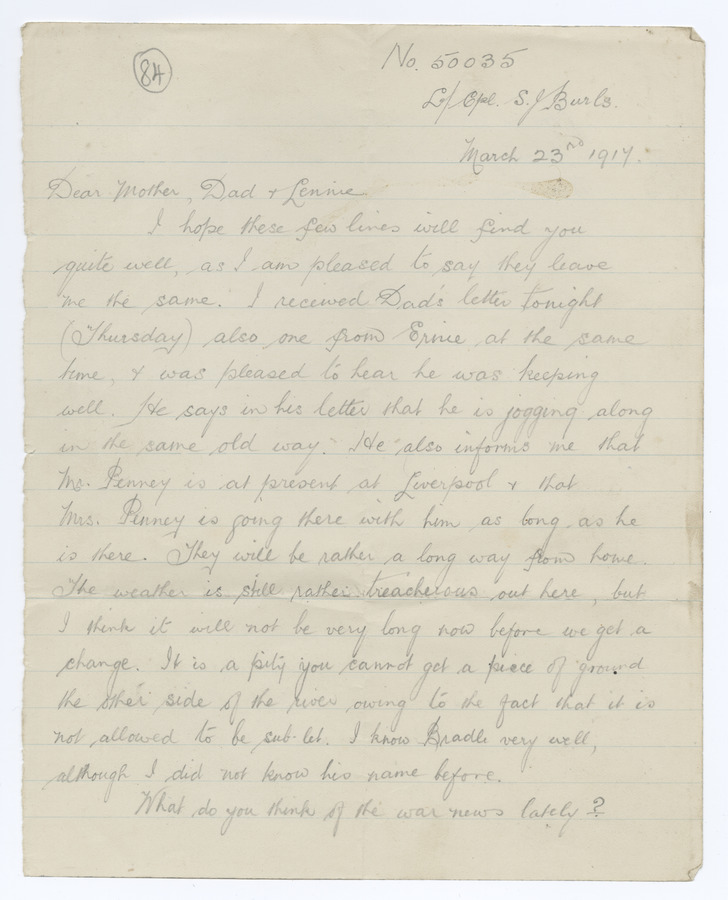 84
No. 50035
L/Cpl. S. J Burls.
March 23rd 1917.
Dear Mother, Dad & Lennie
I hope these few lines will find you
quite well, as I am pleased to say they leave
me the same. I received Dad's letter tonight
(Thursday) also one from Ernie at the same
time, & was pleased to hear he was keeping
well. He says in his letter that he is jogging along
in the same old way. He also informs me that
Mr. Penney is at present at Liverpool & that
Mrs. Penney is going there with him as long as he
is there. They will be rather a long way from home.
The weather is still rather treacherous out here, but
I think it will not be very long now before we get a
change. It is a pity you cannot get a piece of ground
the other side of the river owing to the fact that it is
not allowed to be sub-let. I know very well,
although I did not know his name before.
What do you think of the war news lately?